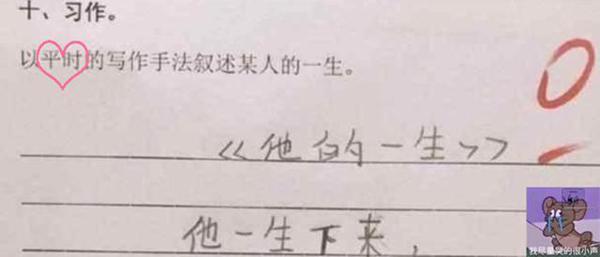 十、习作。
以平时的写作手法叙述某人的一生。
0
《他的一生》
他一生下来，
我尽量哭的很小声